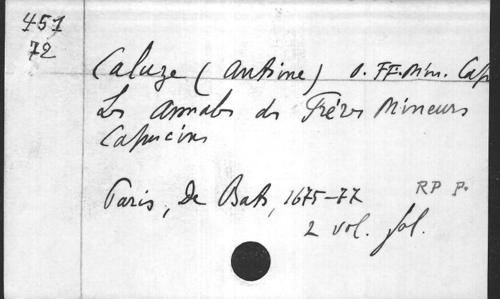 451
72
Caluze (Antoine) O. FF. Min. Cap
Les Annales des Frères Mineurs
Capucins
Paris, De Bats, 1675-77
RP P.
2 vol. fol.